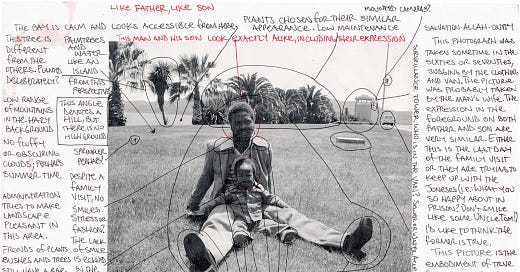 LIKE FATHER, LIKE SON
THE BAY IS CALM AND LOOKS ACCESSIBLE FROM HERE,
THIS TREE IS
DIFFERENT
FROM THE
OTHERS. PLANTED
DELIBERATELY?
PALM TREES
AND
WATER
LIKE AN
ISLAND
FROM THIS
PERSPECTIVE
LOW RANGE
OF MOUNTAINS
IN THE HAZY
BACKGROUND
NO FLUFFY
OR OBSCURING
CLOUDS; PERHAPS
SUMMER TIME
THIS ANGLE
DENOTES A
HILL, BUT
THERE IS NO
HIGH GROUND
SPRINKLER
PERHAPS?
ADMINISTRATION
TRIES TO MAKE
LANDSCAPE
PLEASANT IN
THIS AREA.
FRONDS OF PLANTS
BUSHES AND TREES
STILL HAVE A
DESPITE A
FAMILY
VISIT, NO
SMILES.
STRESS OR
FASHION?
THE LACK
OF SMILE
IS ECHOED
IN THE
PLANTS CHOSEN FOR THEIR SIMILAR
APPEARANCE. LOW MAINTENANCE
THIS MAN AND HIS SON LOOK EXACTLY ALIKE, INCLUDING THEIR EXPRESSION
MOUNTED CAMERAS?
SURVEILLANCE TOWER
WHO IS IN THE VAN?
SALVATION-ALLAH-UNITY
THIS PHOTOGRAPH WAS
TAKEN SOMETIME IN THE
SIXTIES OR SEVENTIES,
JUDGING BY THE CLOTHING
AND VAN, THE PICTURE
WAS PROBABLY TAKEN
BY THE MAN'S WIFE. THE
EXPRESSION IN THE
FOREGROUND ON BOTH
FATHER AND SON ARE
VERY SIMILAR. EITHER
THIS IS THE LAST DAY
OF THE FAMILY VISIT
OR THEY ARE TRYING TO
KEEP UP WITH THE
JONESES (I.E: WHAT YOU
SO HAPPY ABOUT IN
PRISON? DON'T SMILE
LIKE SOME UNCLE TOM!)
I'D LIKE TO THINK THE
FORMER IS TRUE.
THIS PICTURE IS THE
EMBODIMENT OF TRUE